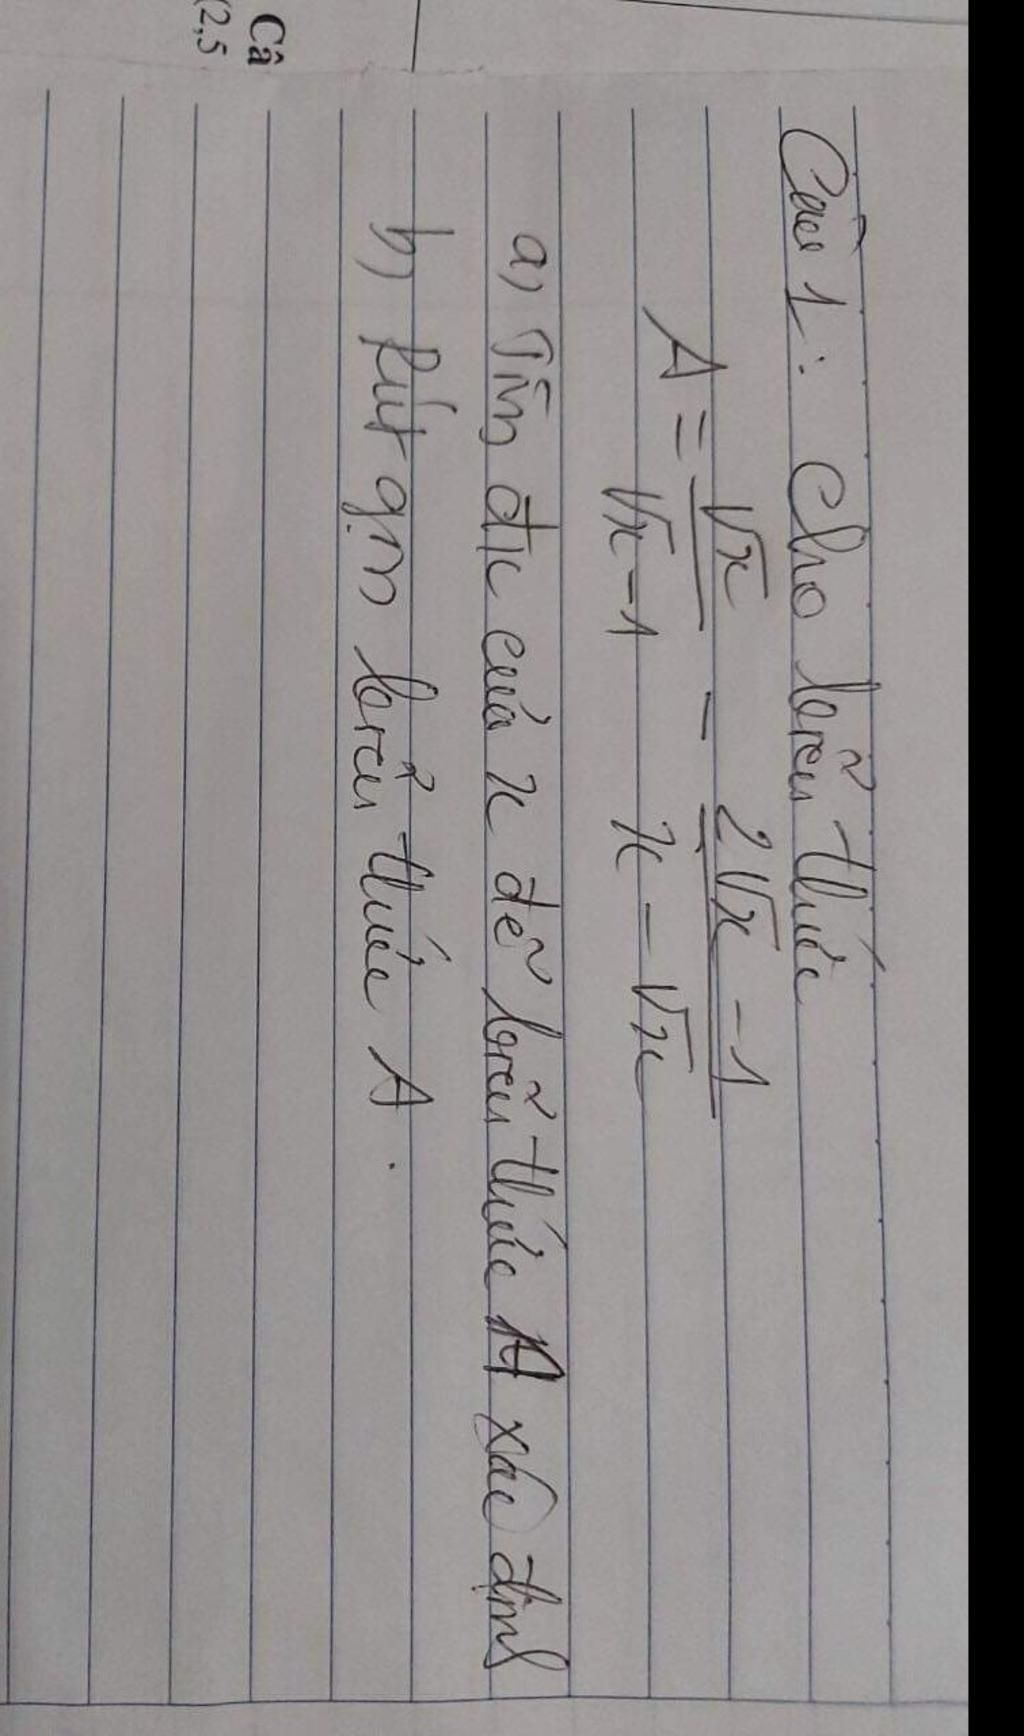 Câu 1 : Cho biểu thức
A = √x / √x - 1 - 2√x - 1 / x - √x
a) Tìm đk của x để biểu thức A xác định
b) Rút gọn biểu thức A .
Câ
(2,5